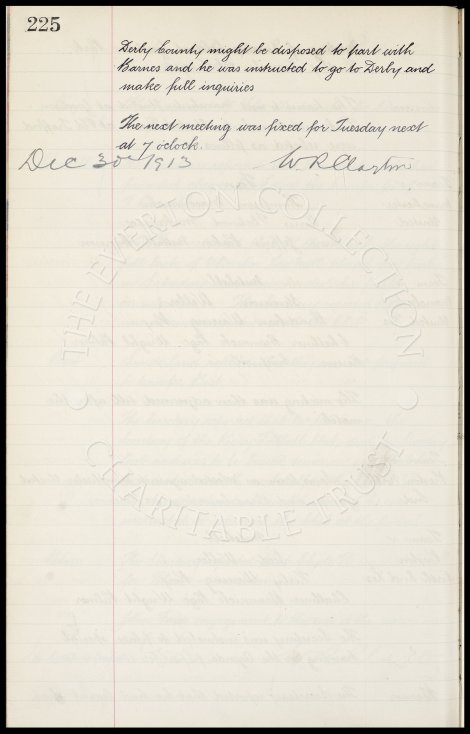 225
Derby County might be disposed to part with
Barnes and he was instructed to go to Derby and
make full inquiries
The next meeting was fixed for Tuesday next
at 7 o'clock.
Dec 30th 1913 W. R. Clayton
THE EVERTON COLLECTION
CHARITABLE TRUST